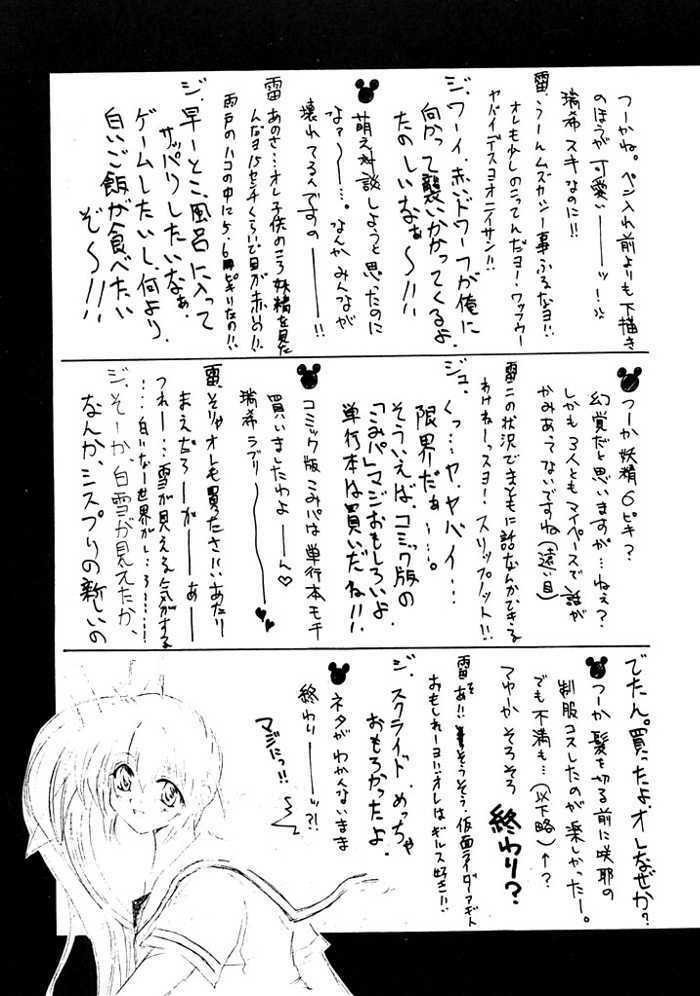 つーかね。ペン入れ前よりも下描き
のほうが可愛いーーーッ!
瑞希スキなのに!!
雷.うーんムズカシー事ふるなヨ!!
オレも少しのこってんだヨー!ワップウー
ヤバイデスヨオニイサン!!
ジ.ワーイ.赤いドワーフが俺に
向かって襲いかかってくるよ.
たのしいなぁ〜!!
萌え対談しようと思ったのに
なァ〜〜…。なんかみんなが
壊れてるんですの———!!
雷 あのさ…オレ子供のころ妖精を見た
んだヨ15センチくらいで目が赤め!!
雨戸のハコの中に5.6ピキいたの!!
ジ.早ーとこ風呂に入って
サッパリしたいなぁ.
ゲームしたいし.何より.
白いご飯が食べたい
ぞ〜!!
つーか妖精6ピキ?
幻覚だと思いますが…ねえ?
しかも3人ともマイペースで話が
かみあてないですね(遠い目)
雷 この状況でまともに話なんかできる
わけねーっスヨ!スリップノット!!
ジュ.
くっ…ヤ.ヤバイ…
限界だぁー…。
そういえば.コミック版の
「こみパ」マジおもしろいよ.
単行本は買いだね!!
コミック版こみパは単行本モチ
買いましたわよーーん♡
瑞希ラブリー〜〜〜
雷.そりゃオレも買ったさ!!あたり
まえだろーがーーあーー
つれー…雪が見える気がする
…白いなー世界がし…ろ……
ジ.そーか.白雪が見えたか.
なんか.シスプリの新しいの
でたん。買ったよ.オレなぜか?
つーか髪を切る前に咲耶の
制服コスしたのが楽しかったー。
でも不満も…(以下略)←?
てゆーかそろそろ
終わり?
雷を.あ!!そうそう.仮面ライダーアギト
おもしれーヨ!!オレはギルス好き!!
ジ.スクライド.めっちゃ
おもろかったよ.
ネタがわかんないまま
終わりーーーッ?!
マジにっ!!